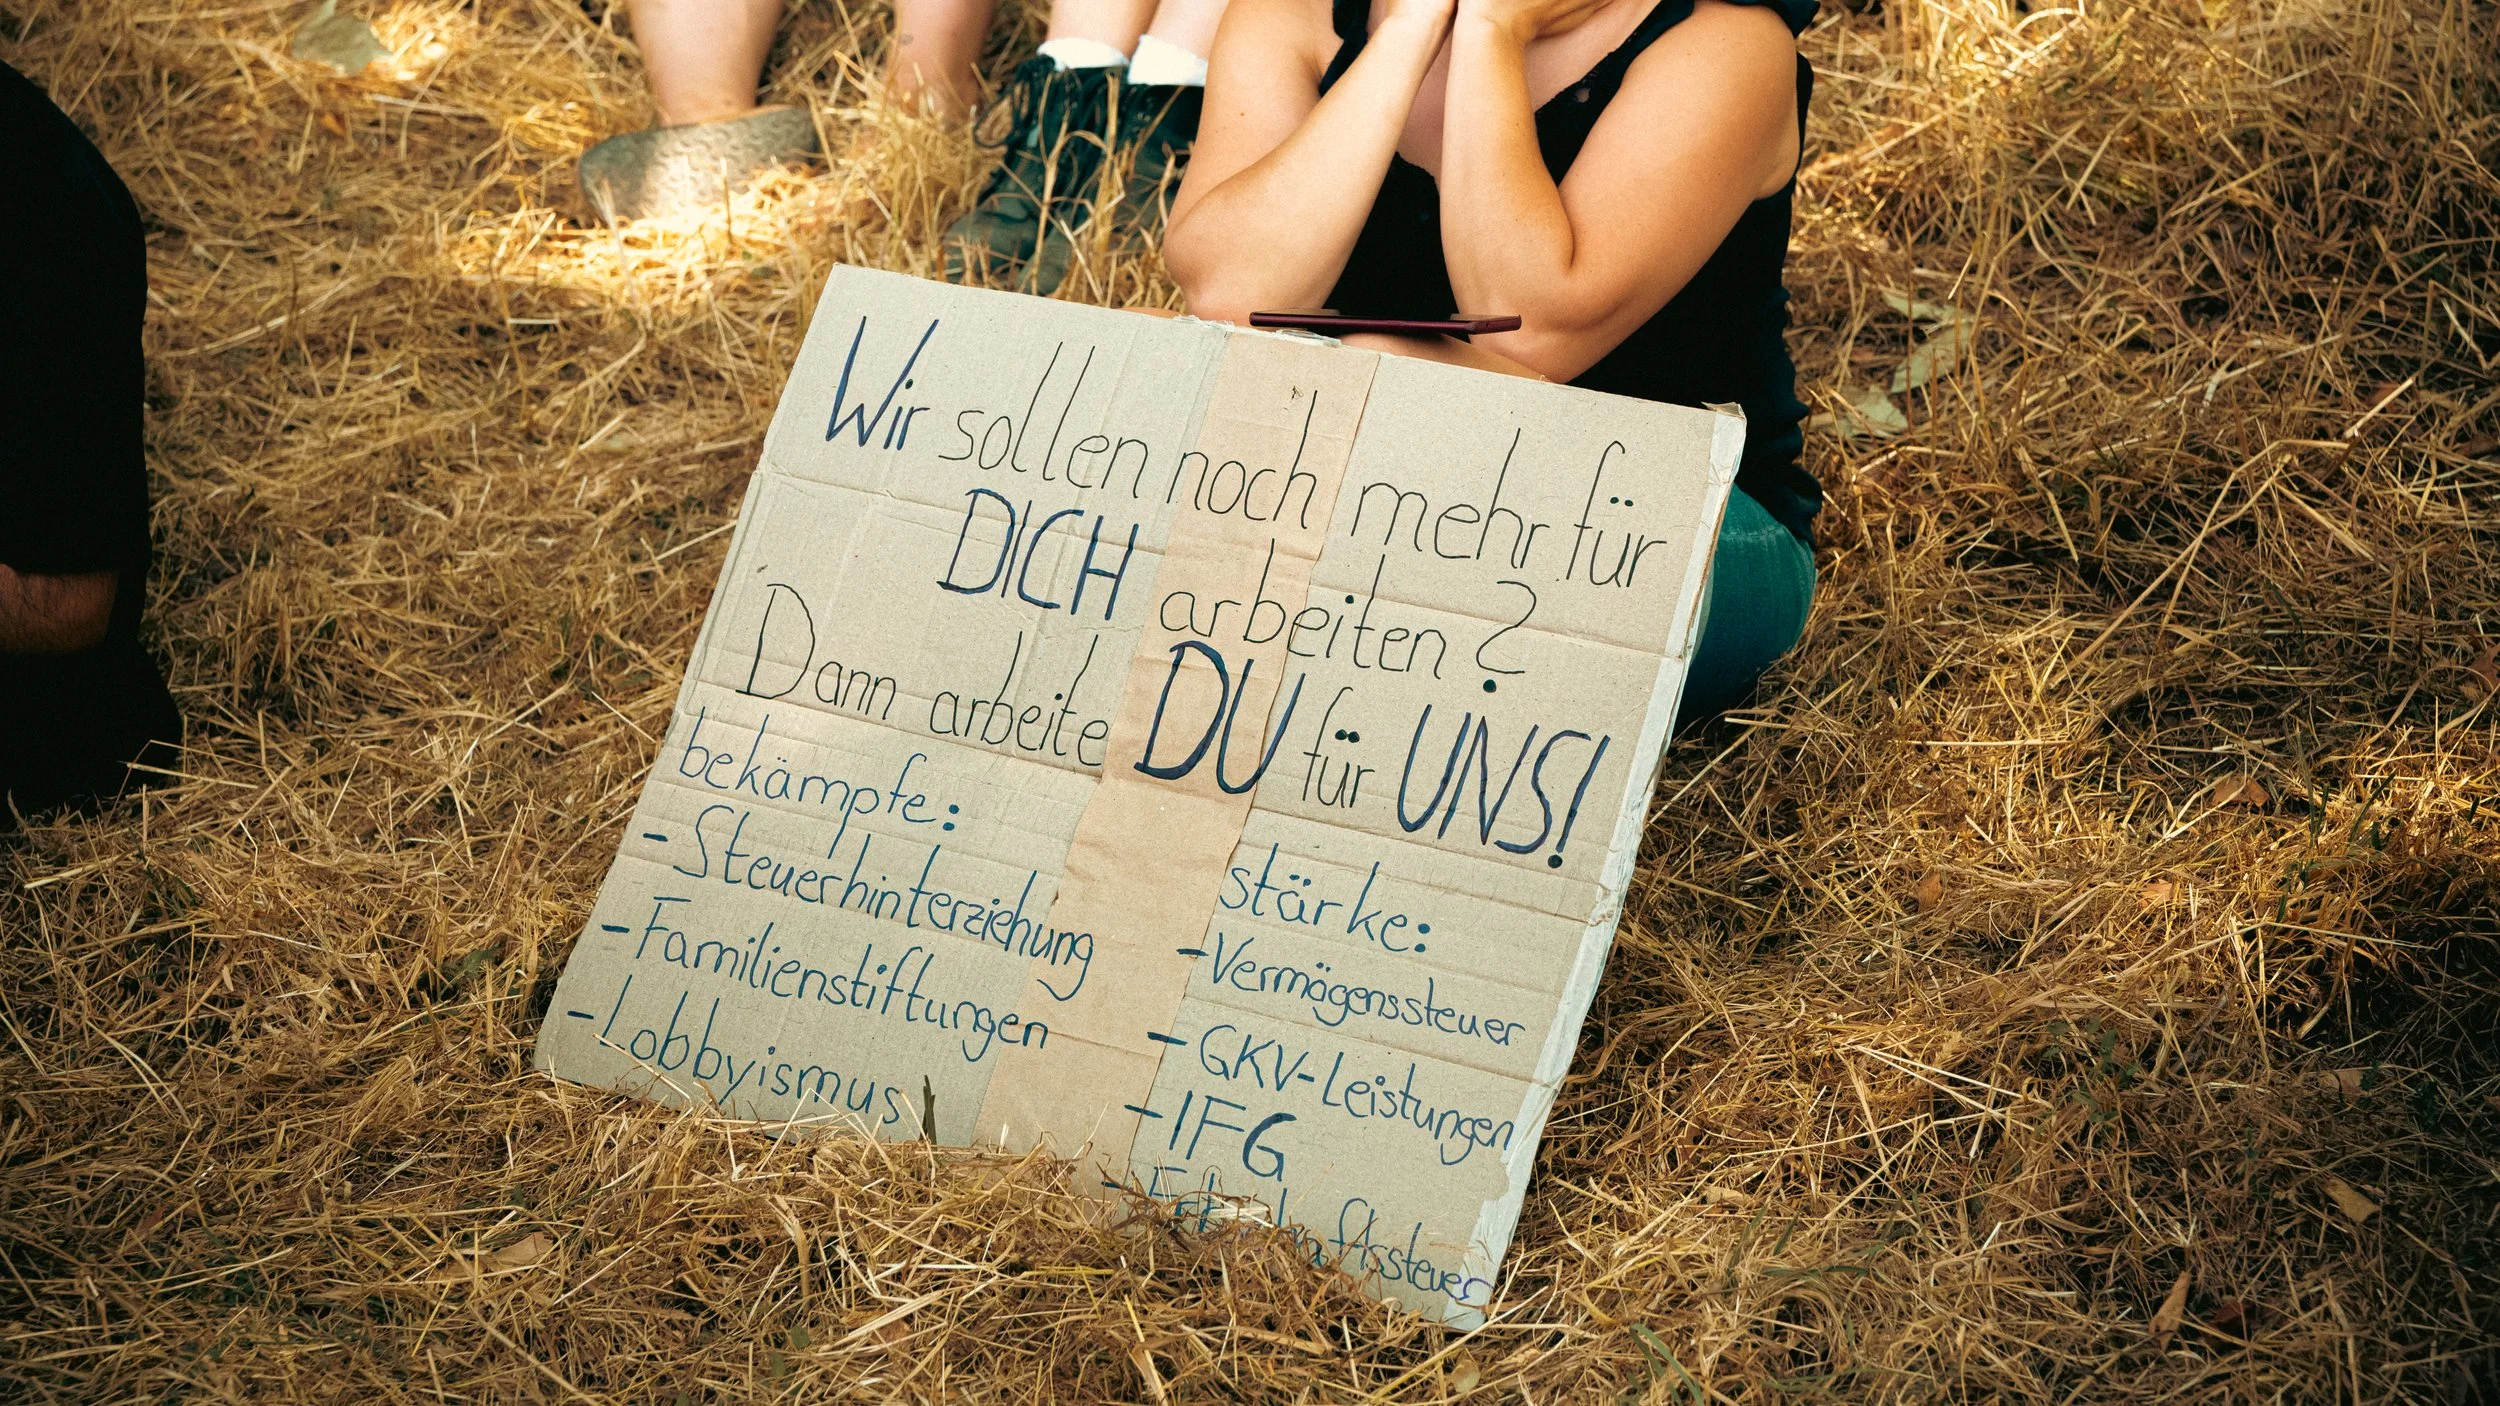 Wir sollen noch mehr für
DICH arbeiten?
Dann arbeite DU für UNS!
bekämpfe:
- Steuerhinterziehung
- Familienstiftungen
- Lobbyismus
stärke:
- Vermögenssteuer
- GKV-Leistungen
- IFG